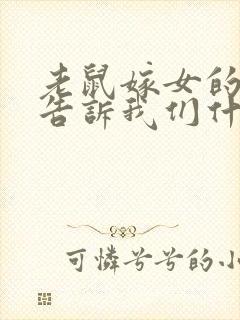 老鼠嫁女的
告訴我们什
可憐兮兮的小